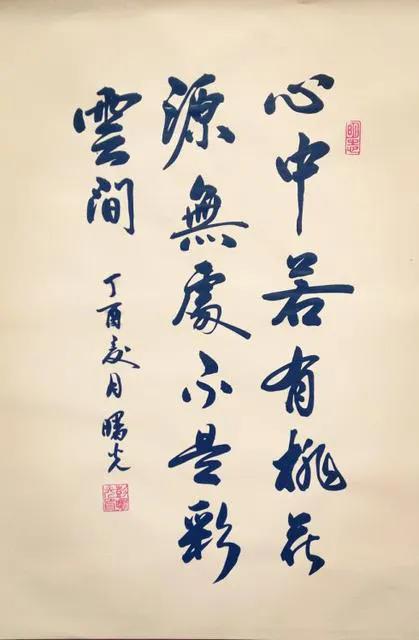 心中若有桃花
源無處不是彩
雲間
丁酉夏月曙光